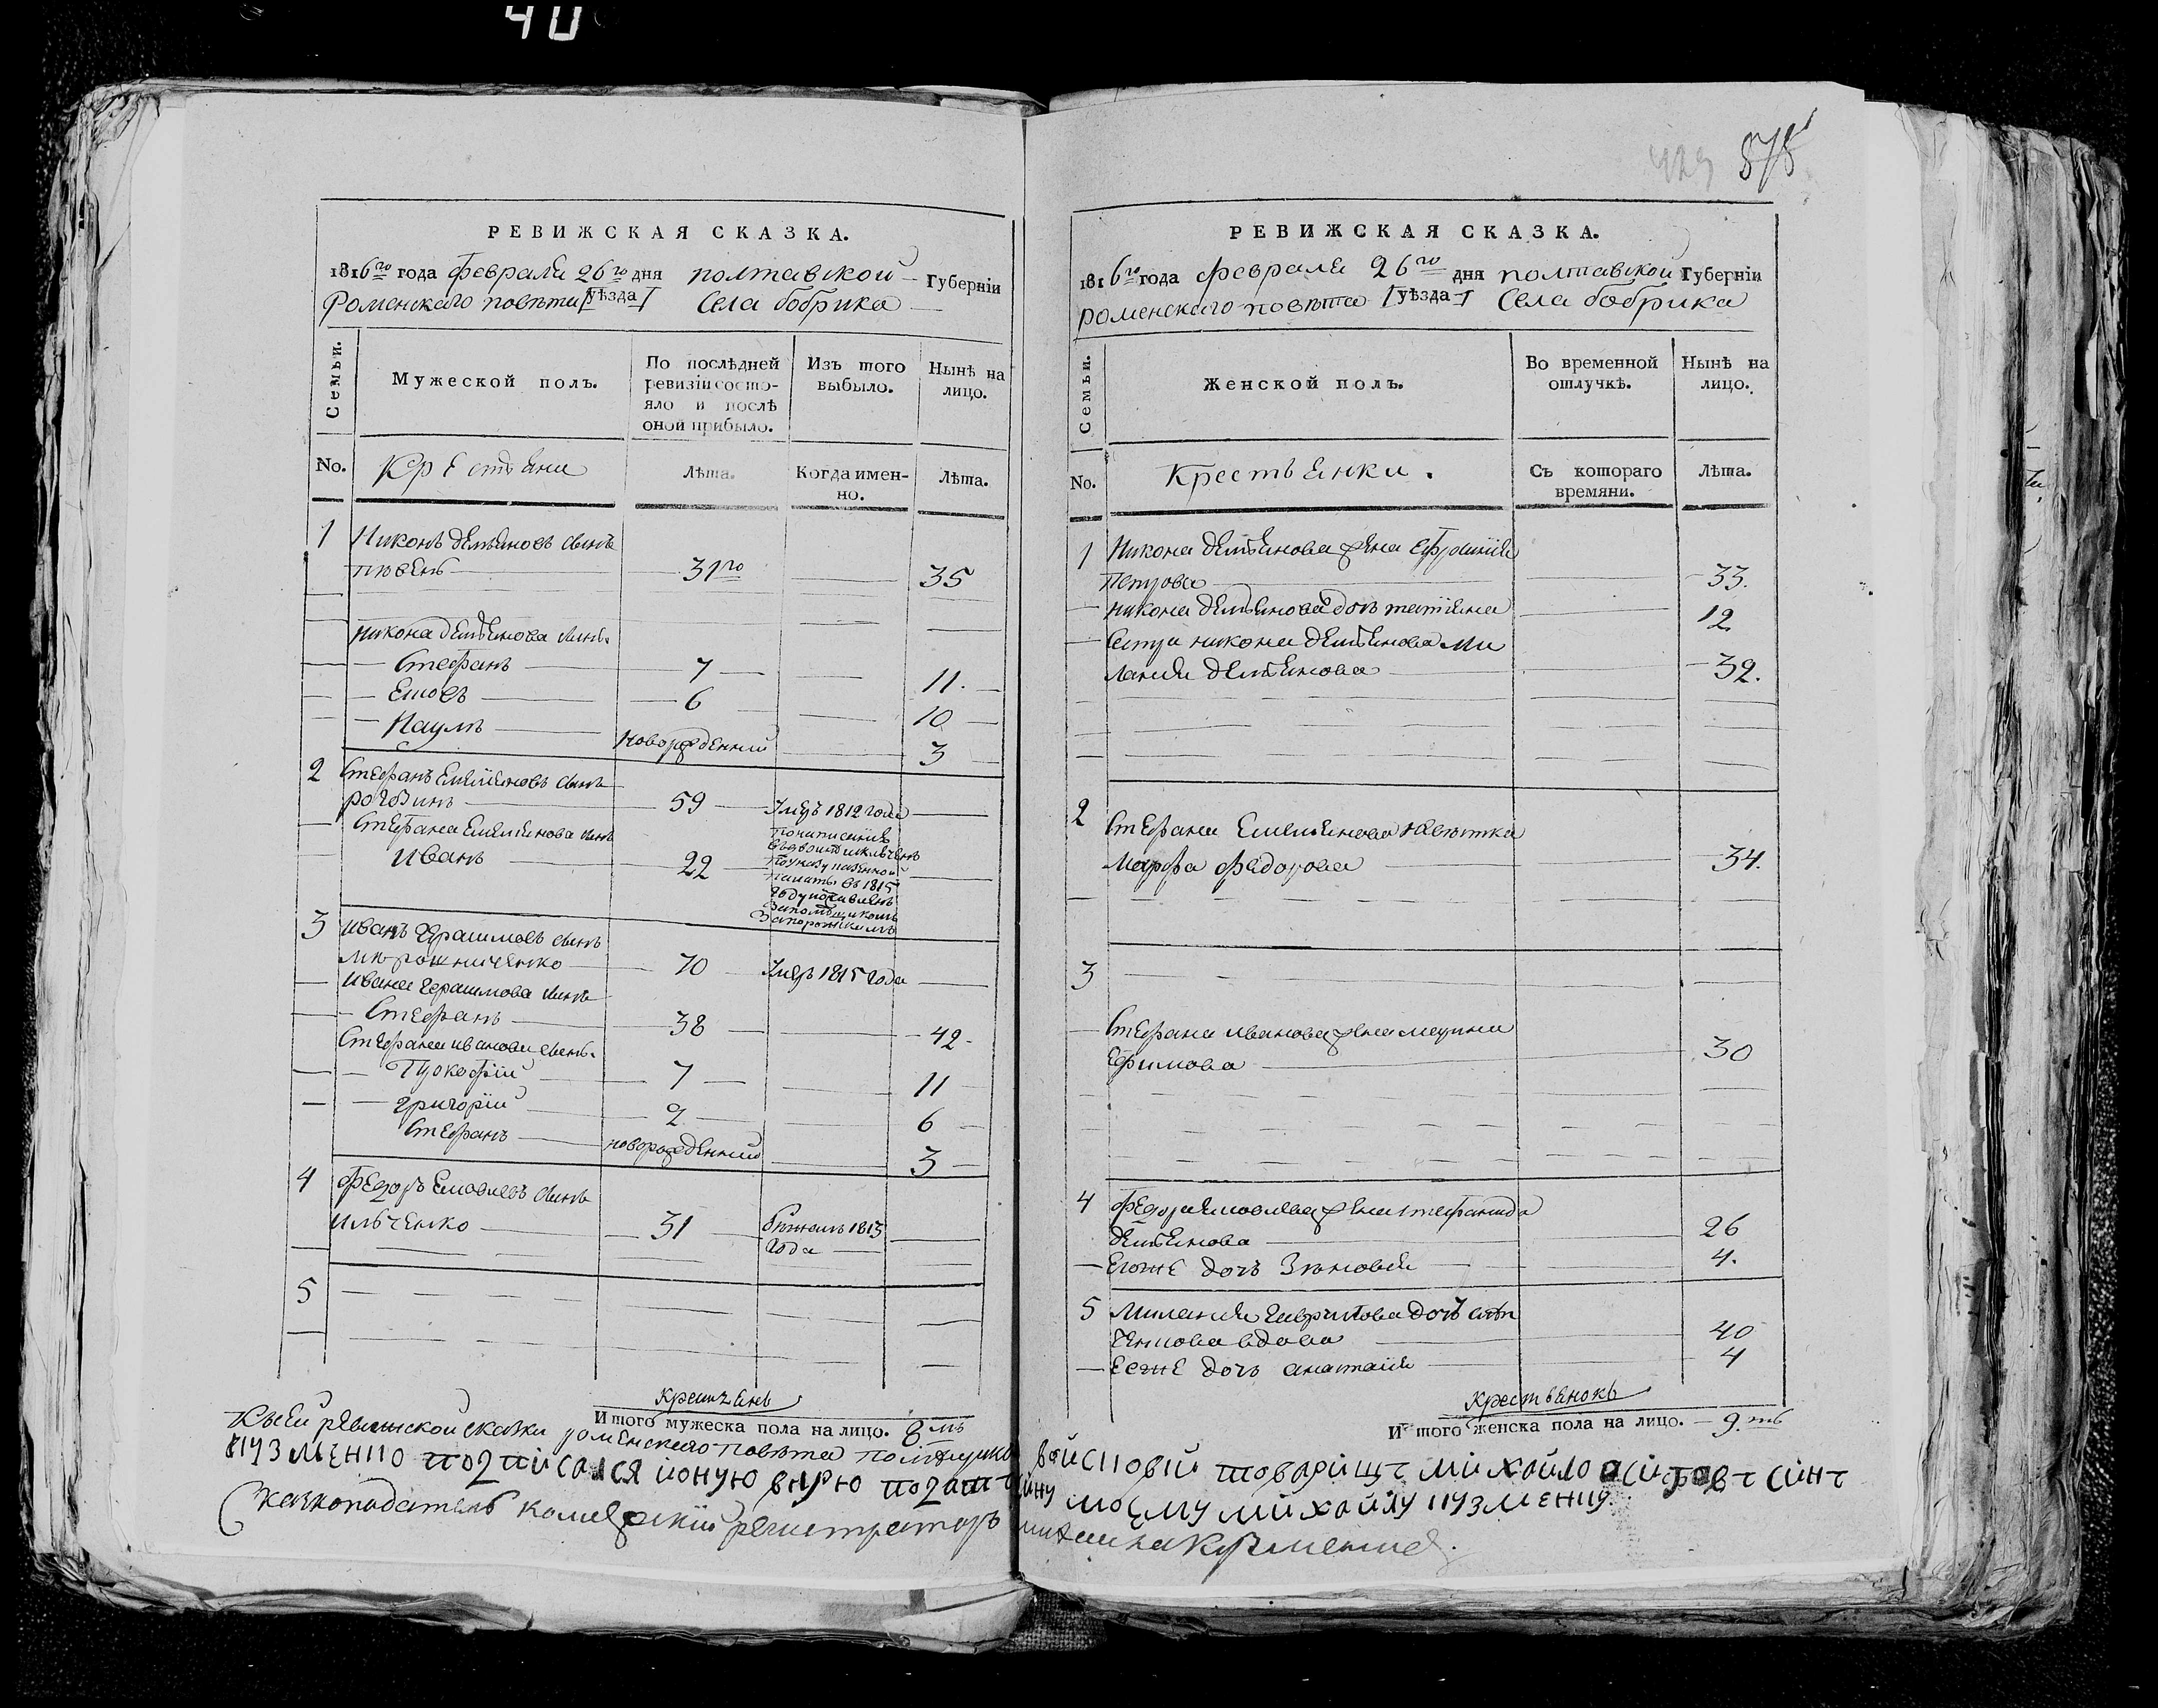 40
878
РЕВИЖСКАЯ СКАЗКА.
1816го года февраля 26го дня полтавской Губерніи
Роменского повѣта уѣзда Села бобрика
Семьи.
Мужеской полъ.
По послѣдней ревизіи состо-
яло и послѣ
оной прибыло.
Изъ того
выбыло.
Нынѣ на
лицо.
No.
Крестьяни
Лѣта.
Когда имен-
но.
Лѣта.
1 Никонъ демьяновъ сынъ
31го 35
никона демьянова сынъ
Стефанъ 7 11.
6 10
Наумъ новорожденний 3
2 Стефанъ Емелияновъ сынъ
59 умеръ 1812 года
Стефана Емелиянова сынъ
иванъ 22
въ 1815
году
3 иванъ герасимовъ сынъ
мирошниченко 70 умеръ 1815 года
ивана герасимова сынъ
Стефанъ 38 42
Стефана иванова сынъ
Прокофій 7 11
григорій 2 6
Стефанъ новорожденний 3
4 федоръ сынъ
ильченко 31 бежалъ 1813
года
5
Итого мужеска пола на лицо. 8мъ
РЕВИЖСКАЯ СКАЗКА.
1816го года февраля 26го дня полтавской Губерніи
роменского повѣта уѣзда Села бобрика
Семьи.
Женской полъ.
Во временной
отлучкѣ.
Нынѣ на
лицо.
No.
Крестьянки.
Съ котораго
времяни.
Лѣта.
1 Никона демьянова жена
петрова 33.
никона демьянова дочь татияна 12
никона демьянова ми
лания демьянова 32.
2 Стефана Емелиянова невѣстка
марфа федорова 34.
3
Стефана иванова жена марина
Ефимова 30
4 жена
демьянова 26
Егоже дочь Зѣновия 4.
5 милания гаврилова дочь
вдова 40
Ееже дочь анастасия 4
крестьянокъ
Итого женска пола на лицо. 9.ть
Ксей ревижской сказки роменского повѣта войсковій товарищъ михайло сінъ
кузменко подписался моему михайлу кузменку.
Сказкоподатель колежский регистраторъ